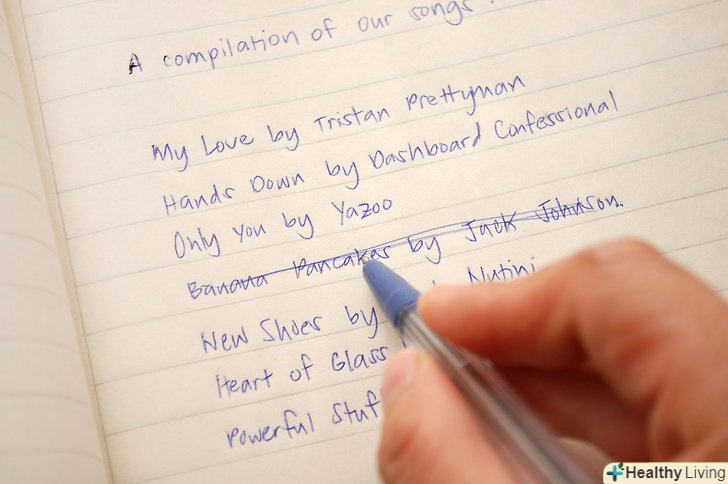 A compilation of our songs
My Love by Tristan Prettyman
Hands Down by Dashboard Confessional
Only You by Yazoo
Banana Pancakes by Jack Johnson.
New Shoes by Nutini
Heart of Glass
Powerful Stuf
Healthy Living